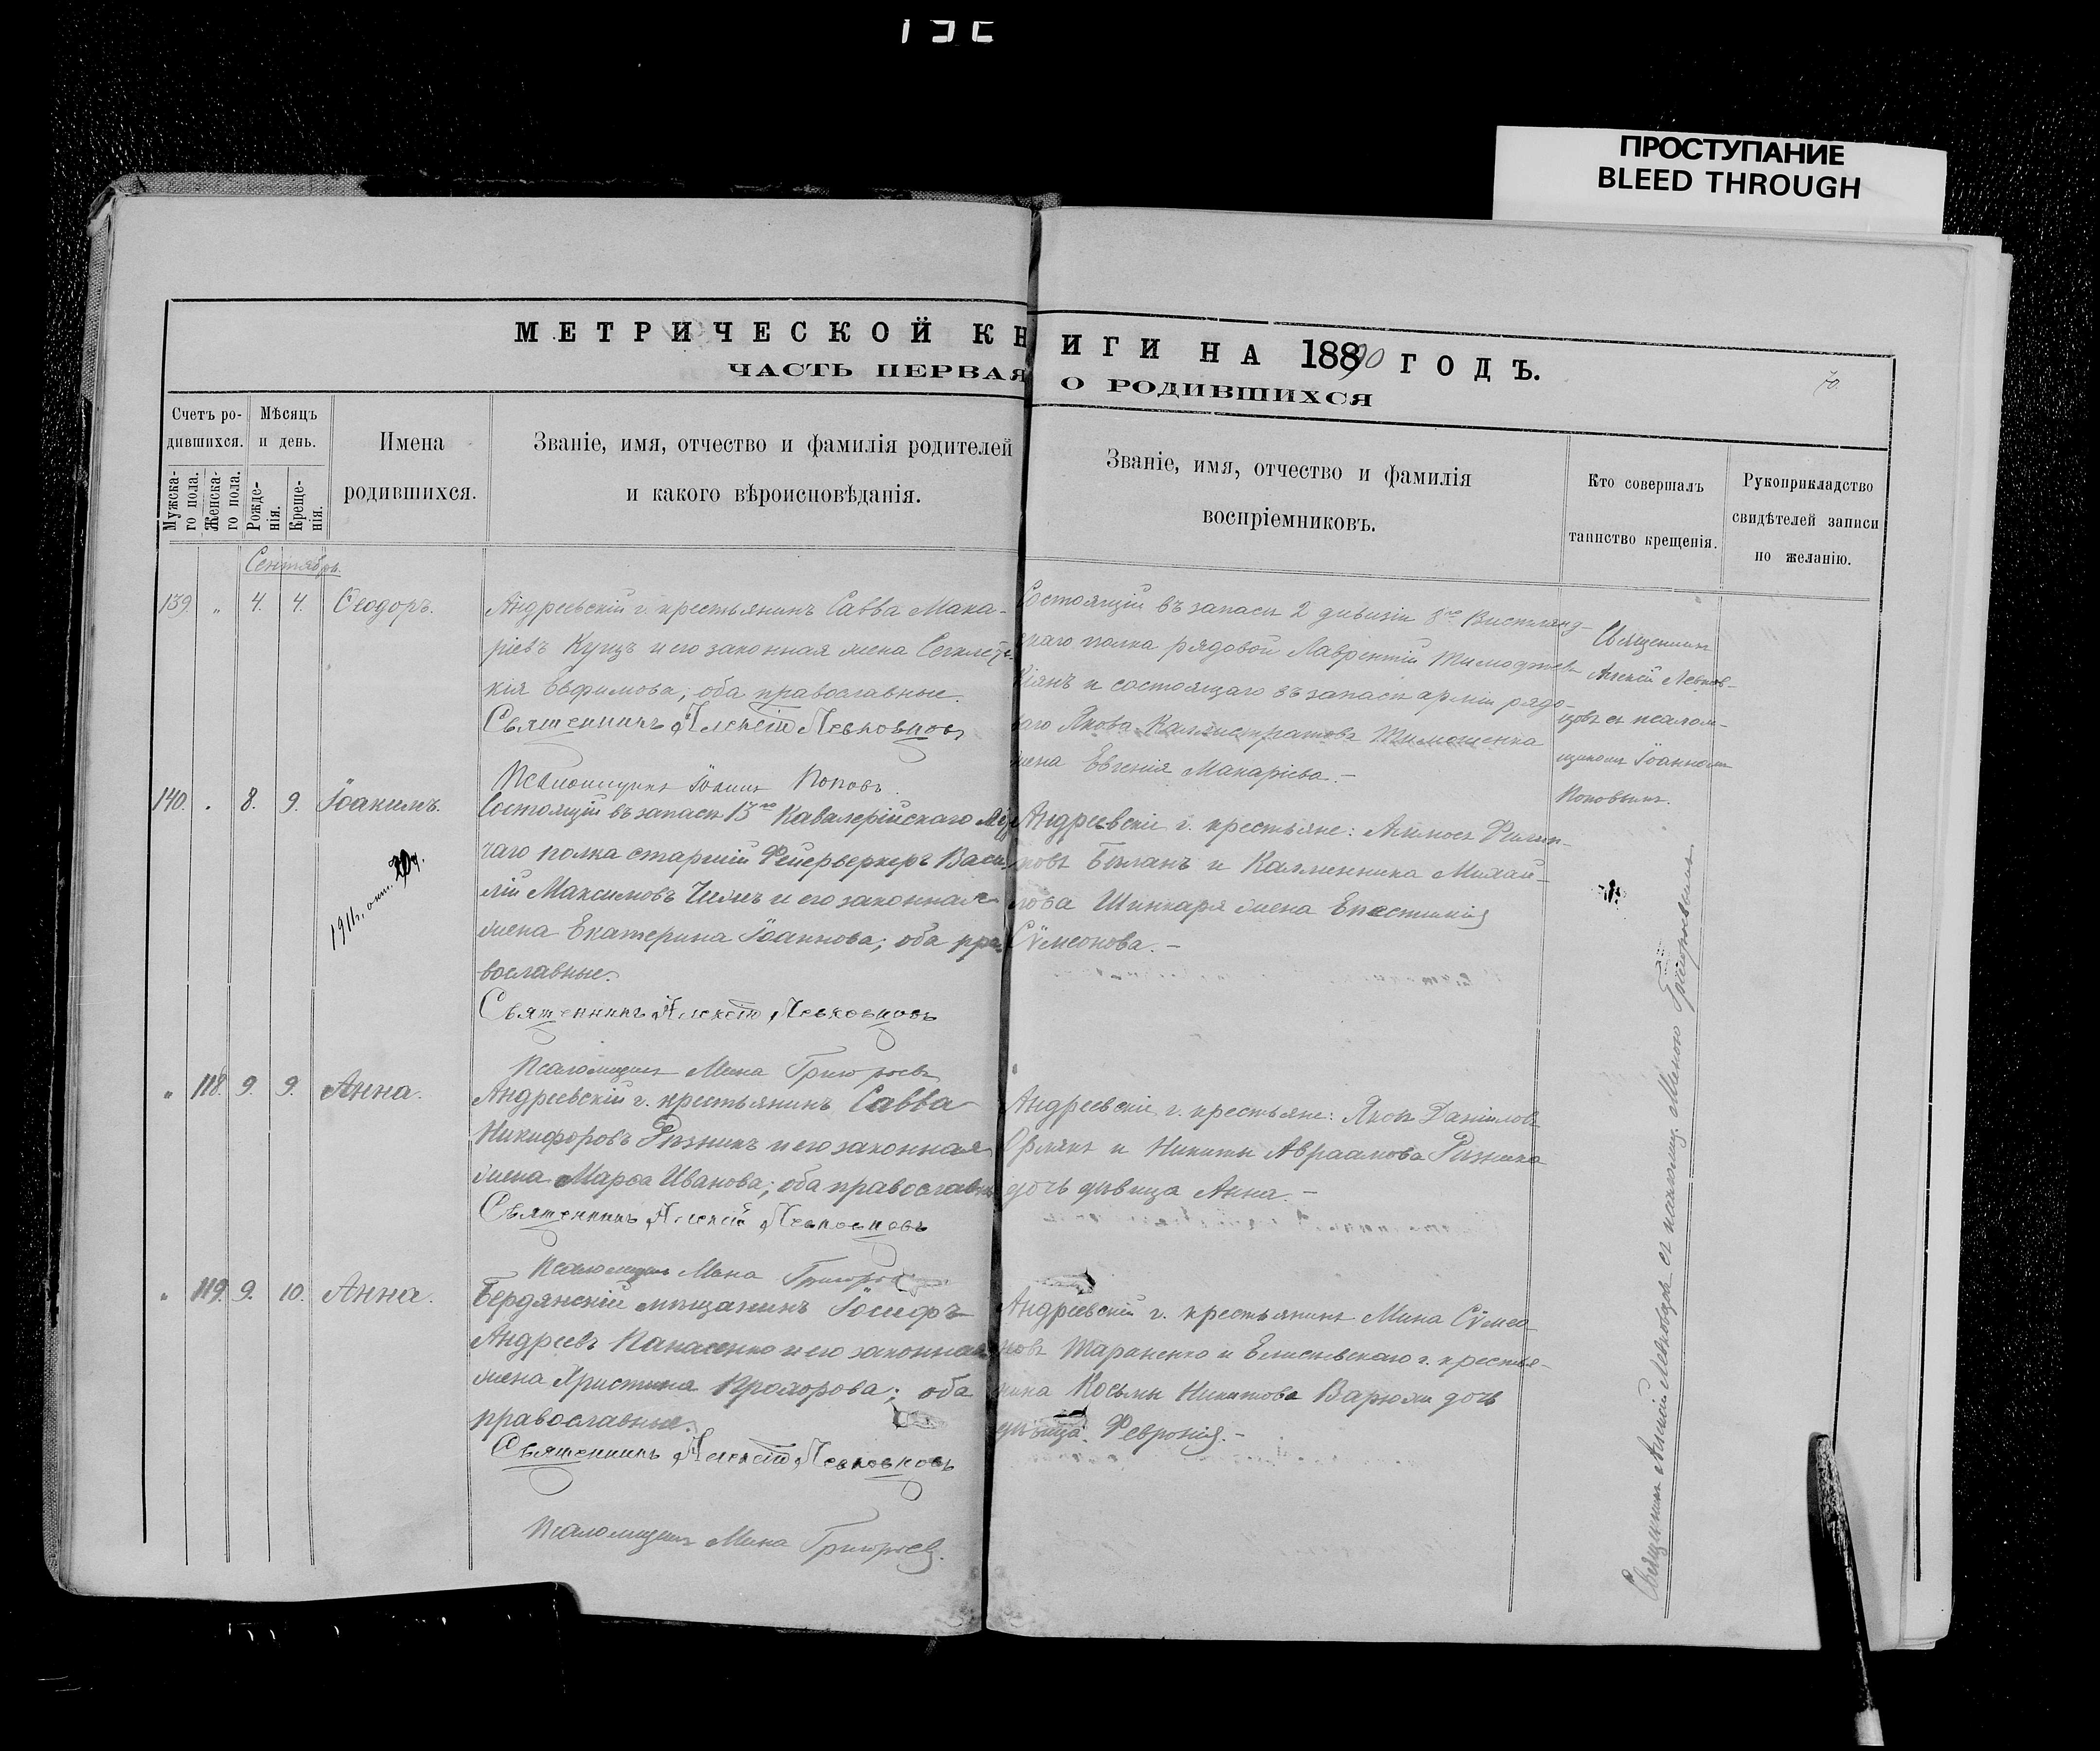 ПРОСТУПАНИЕ
BLEED THROUGH
МЕТРИЧЕСКОЙ КНИГИ НА 18890 ГОДЪ.
ЧАСТЬ ПЕРВАЯ О РОДИВШИХСЯ
70.
Счетъ ро-
дившихся.
Мужска-
го пола.
Женска-
го пола.
Мѣсяцъ
и день.
Рожде-
нія.
Креще-
нія.
Имена
родившихся.
Званіе, имя, отчество и фамилія родителей
и какого вѣроисповѣданія.
Званіе, имя, отчество и фамилія
воспріемниковъ.
Кто совершалъ
таинство крещенія.
Рукоприкладство
свидѣтелей записи
по желанію.
Сентябрь.
139. „ 4. 4. Ѳеодоръ.
Андреевскій г. крестьянинъ Савва Мака-
ріевъ Куцъ и его законная жена
кія Евфимова; оба православные.
Священникъ Алексій Левковцовъ
Псаломщикъ Іоаннъ Поповъ.
Состоящій въ запасѣ 2 дивизіи 8го
рядовой Лаврентій
и состоящаго въ запасѣ арміи рядо-
ваго Якова Каллистратова Тимошенка
жена Евгенія Макаріева.-
Священникъ
Алексій Левков-
цовъ съ псалом-
щикомъ Іоанномъ
Поповымъ.
140. „ 8. 9. Іоакимъ.
Состоящій въ запасѣ 13го Кавалерійскаго
полка старшій Фейерверкеръ Васи-
лій Максимовъ и его законная
жена Екатерина Іоаннова; оба пра-
вославные.
Священникъ Алексій Левковцовъ
Псаломщикъ Мина Григорьевъ
Андреевскіе г. крестьяне: Филип-
повъ и Каллиника Михай-
лова Шинкаря жена
Сѵмеонова.-
„ 118. 9. 9. Анна.
Андреевскій г. крестьянинъ Савва
Никифоровъ Рѣзникъ и его законная
жена Марѳа Иванова; оба православные
Священникъ Алексій Левковцовъ
Псаломщикъ Мина Григорьевъ
Андреевскіе г. крестьяне: Даніиловъ
и Никиты Авраамова Рѣзника
дочь дѣвица Анна.-
„ 119. 9. 10. Анна.
Бердянскій мѣщанинъ Іосифъ
Андреевъ Панасенко и его законная
жена Христина Прохорова; оба
православные.
Священникъ Алексій Левковцовъ
Псаломщикъ Мина Григорьевъ.
Андреевскій г. крестьянинъ Мина Сѵмео-
новъ Тараненко и Елисѣевскаго г. крестья-
нина Косьмы Никитова дочь
дѣвица Февронія.-
Священникъ Алексій Левковцовъ съ псаломщ. Миною Григорьевымъ.